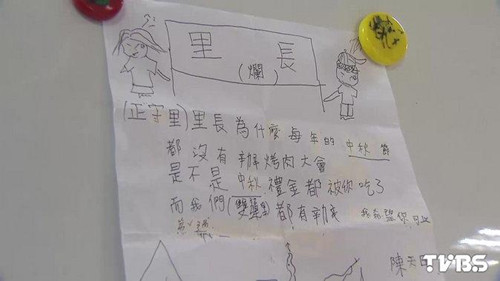 里長
(爛)
(正守里)里長為什麼每年的中秋節
都沒有辦烤肉大會
是不是中秋禮金都被你吃了
而我們(雙龍里)都有
陳
TVBS